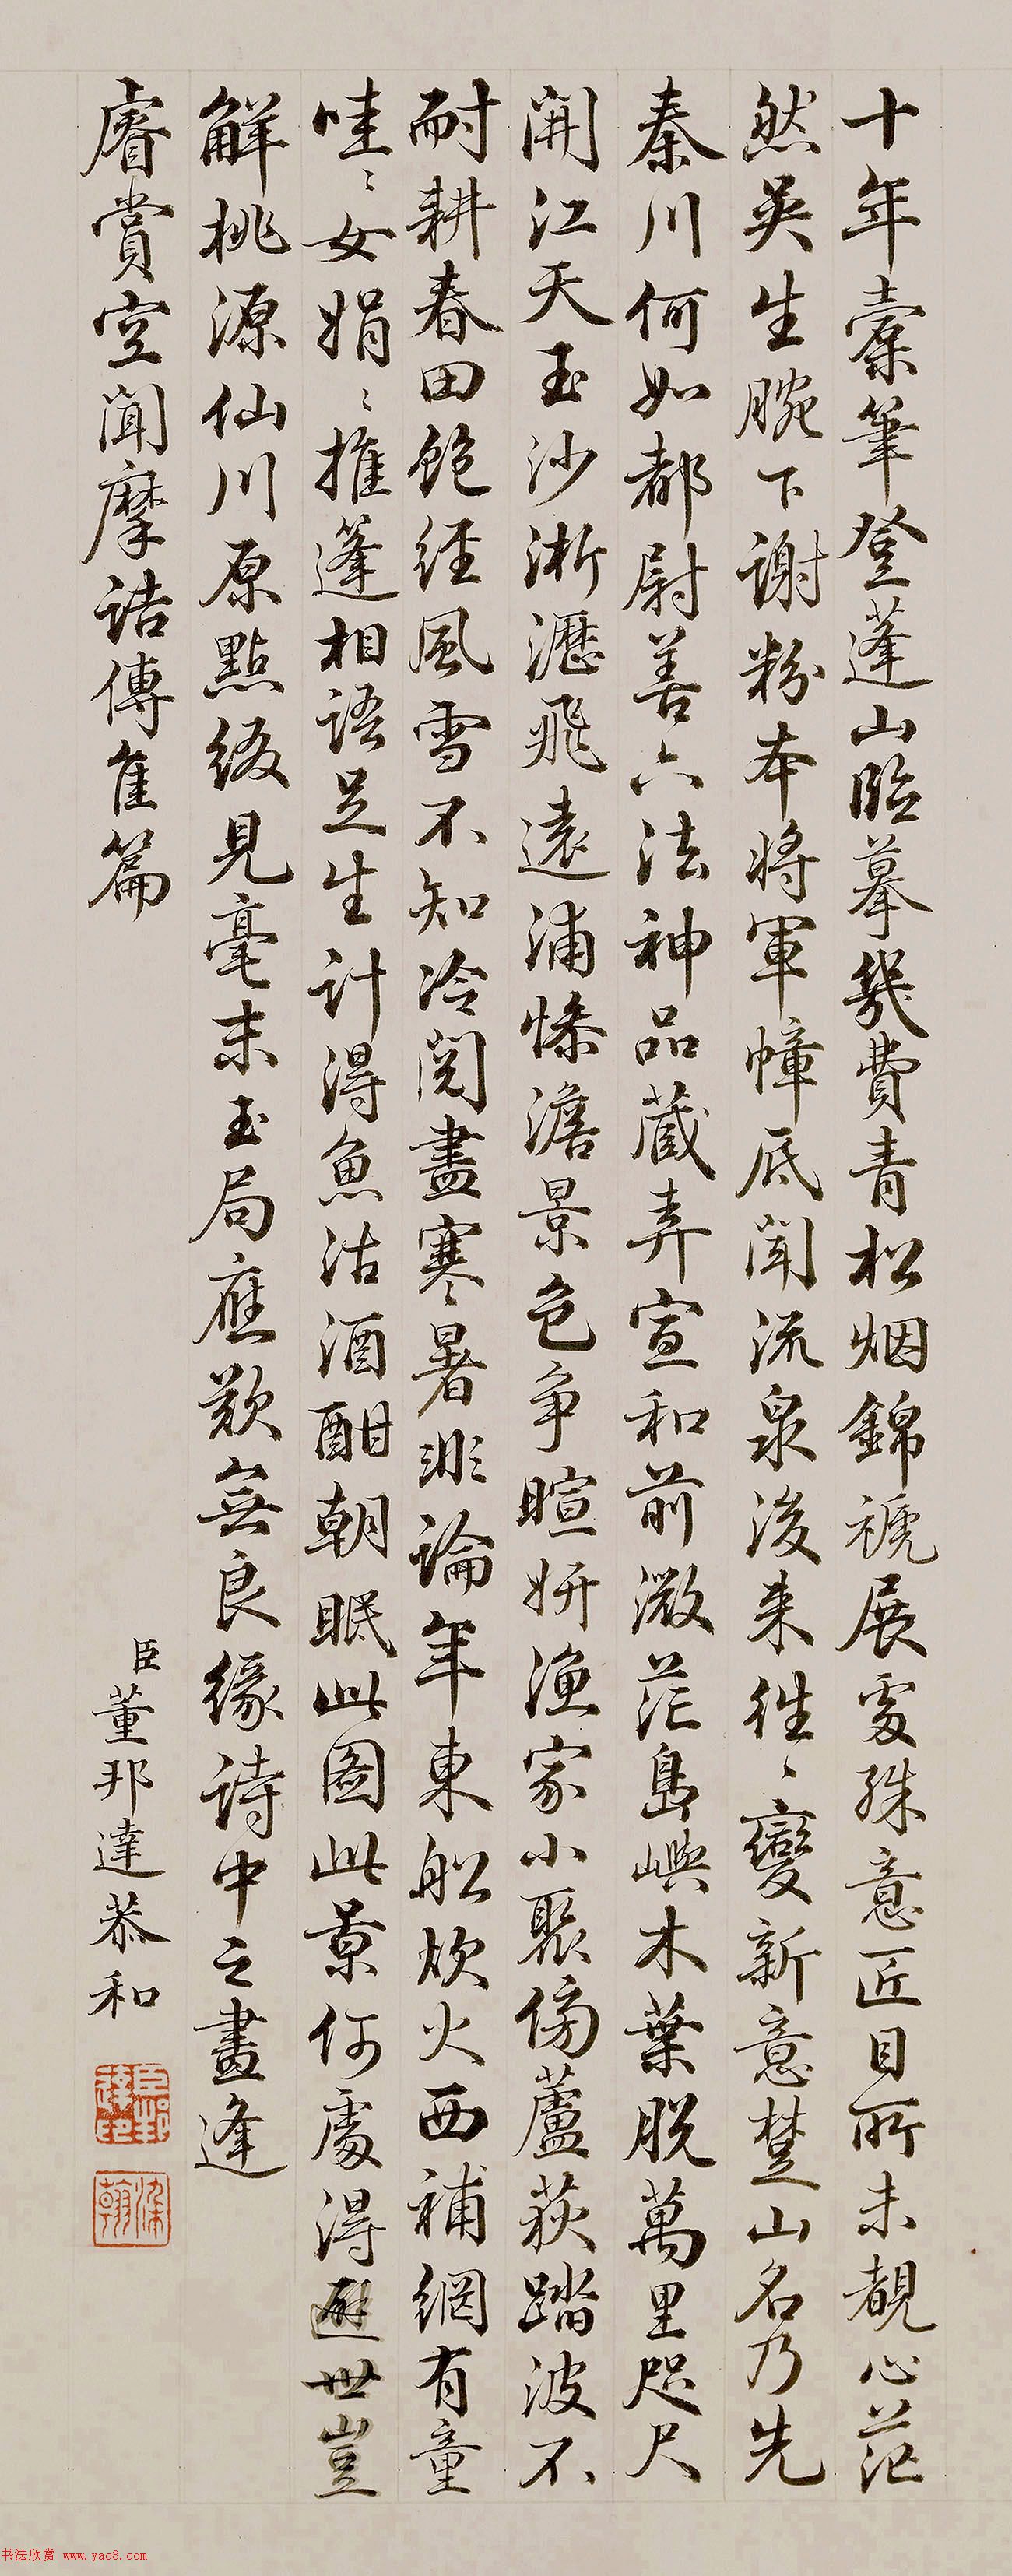 十年橐筆登蓬山臨摹幾費青松烟錦褫展處殊意匠目所未覩心茫
然英生腕下謝粉本將軍幛底聞流泉後来往〻變新意楚山名乃先
秦川何如都尉善六法神品藏弆宣和前微茫島嶼木葉脱萬里咫尺
開江天玉沙淅瀝飛遠浦慘澹景色争暄妍漁家小聚傍蘆荻踏波不
耐耕春田飽經風雪不知冷閱盡寒暑非論年東船炊火西補網有童
哇〻女娟〻推篷相語足生計得魚沽酒酣朝眠此圖此景何處得避世豈
解桃源仙川原點綴見毫末玉局應歎無良緣詩中之畫逢
睿賞空聞摩詰傳隹篇
臣董邦達恭和
臣邦達印
染翰
书法欣赏 www.yac8.com